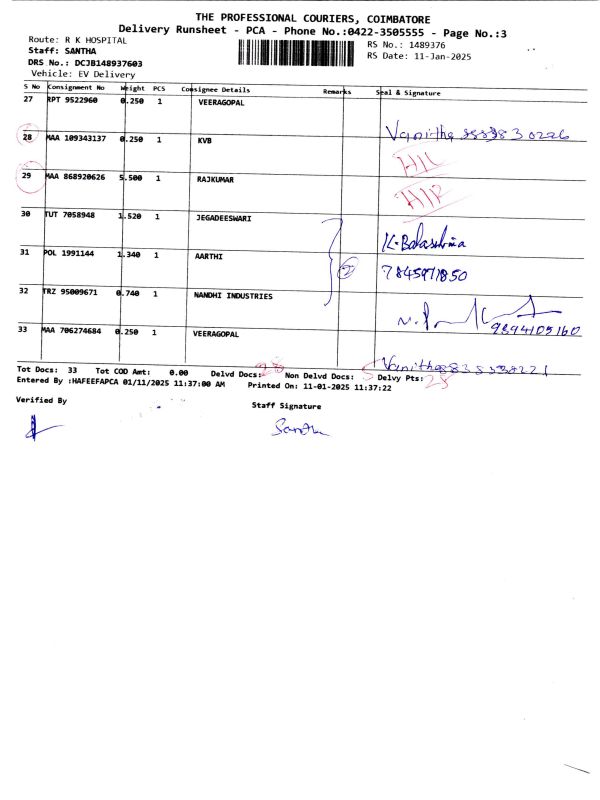 THE PROFESSIONAL COURIERS, COIMBATORE
Delivery Runsheet - PCA - Phone No.:0422-3505555 - Page No.:3
Route: R K HOSPITAL
RS No.: 1489376
Staff: SANTHA
RS Date: 11-Jan-2025
DRS No.: DCJB148937603
Vehicle: EV Delivery
S No Consignment No Weight PCS Consignee Details Remarks Seal & Signature
27 RPT 9522960 0.250 1 VEERAGOPAL
Vanitha
28 MAA 109343137 0.250 1 KVB
29 MAA 868920626 5.500 1 RAJKUMAR
30 TUT 7058948 1.520 1 JEGADEESWARI
31 POL 1991144 1.340 1 AARTHI
7845971850
32 TRZ 95009671 0.740 1 NANDHI INDUSTRIES
9894105160
33 MAA 706274684 0.250 1 VEERAGOPAL
Tot Docs: 33 Tot COD Amt: 0.00 Delvd Docs: 28 Non Delvd Docs: 5 Delvy Pts: 25
Entered By :HAFEEFAPCA 01/11/2025 11:37:00 AM Printed On: 11-01-2025 11:37:22
Verified By
Staff Signature
Santha